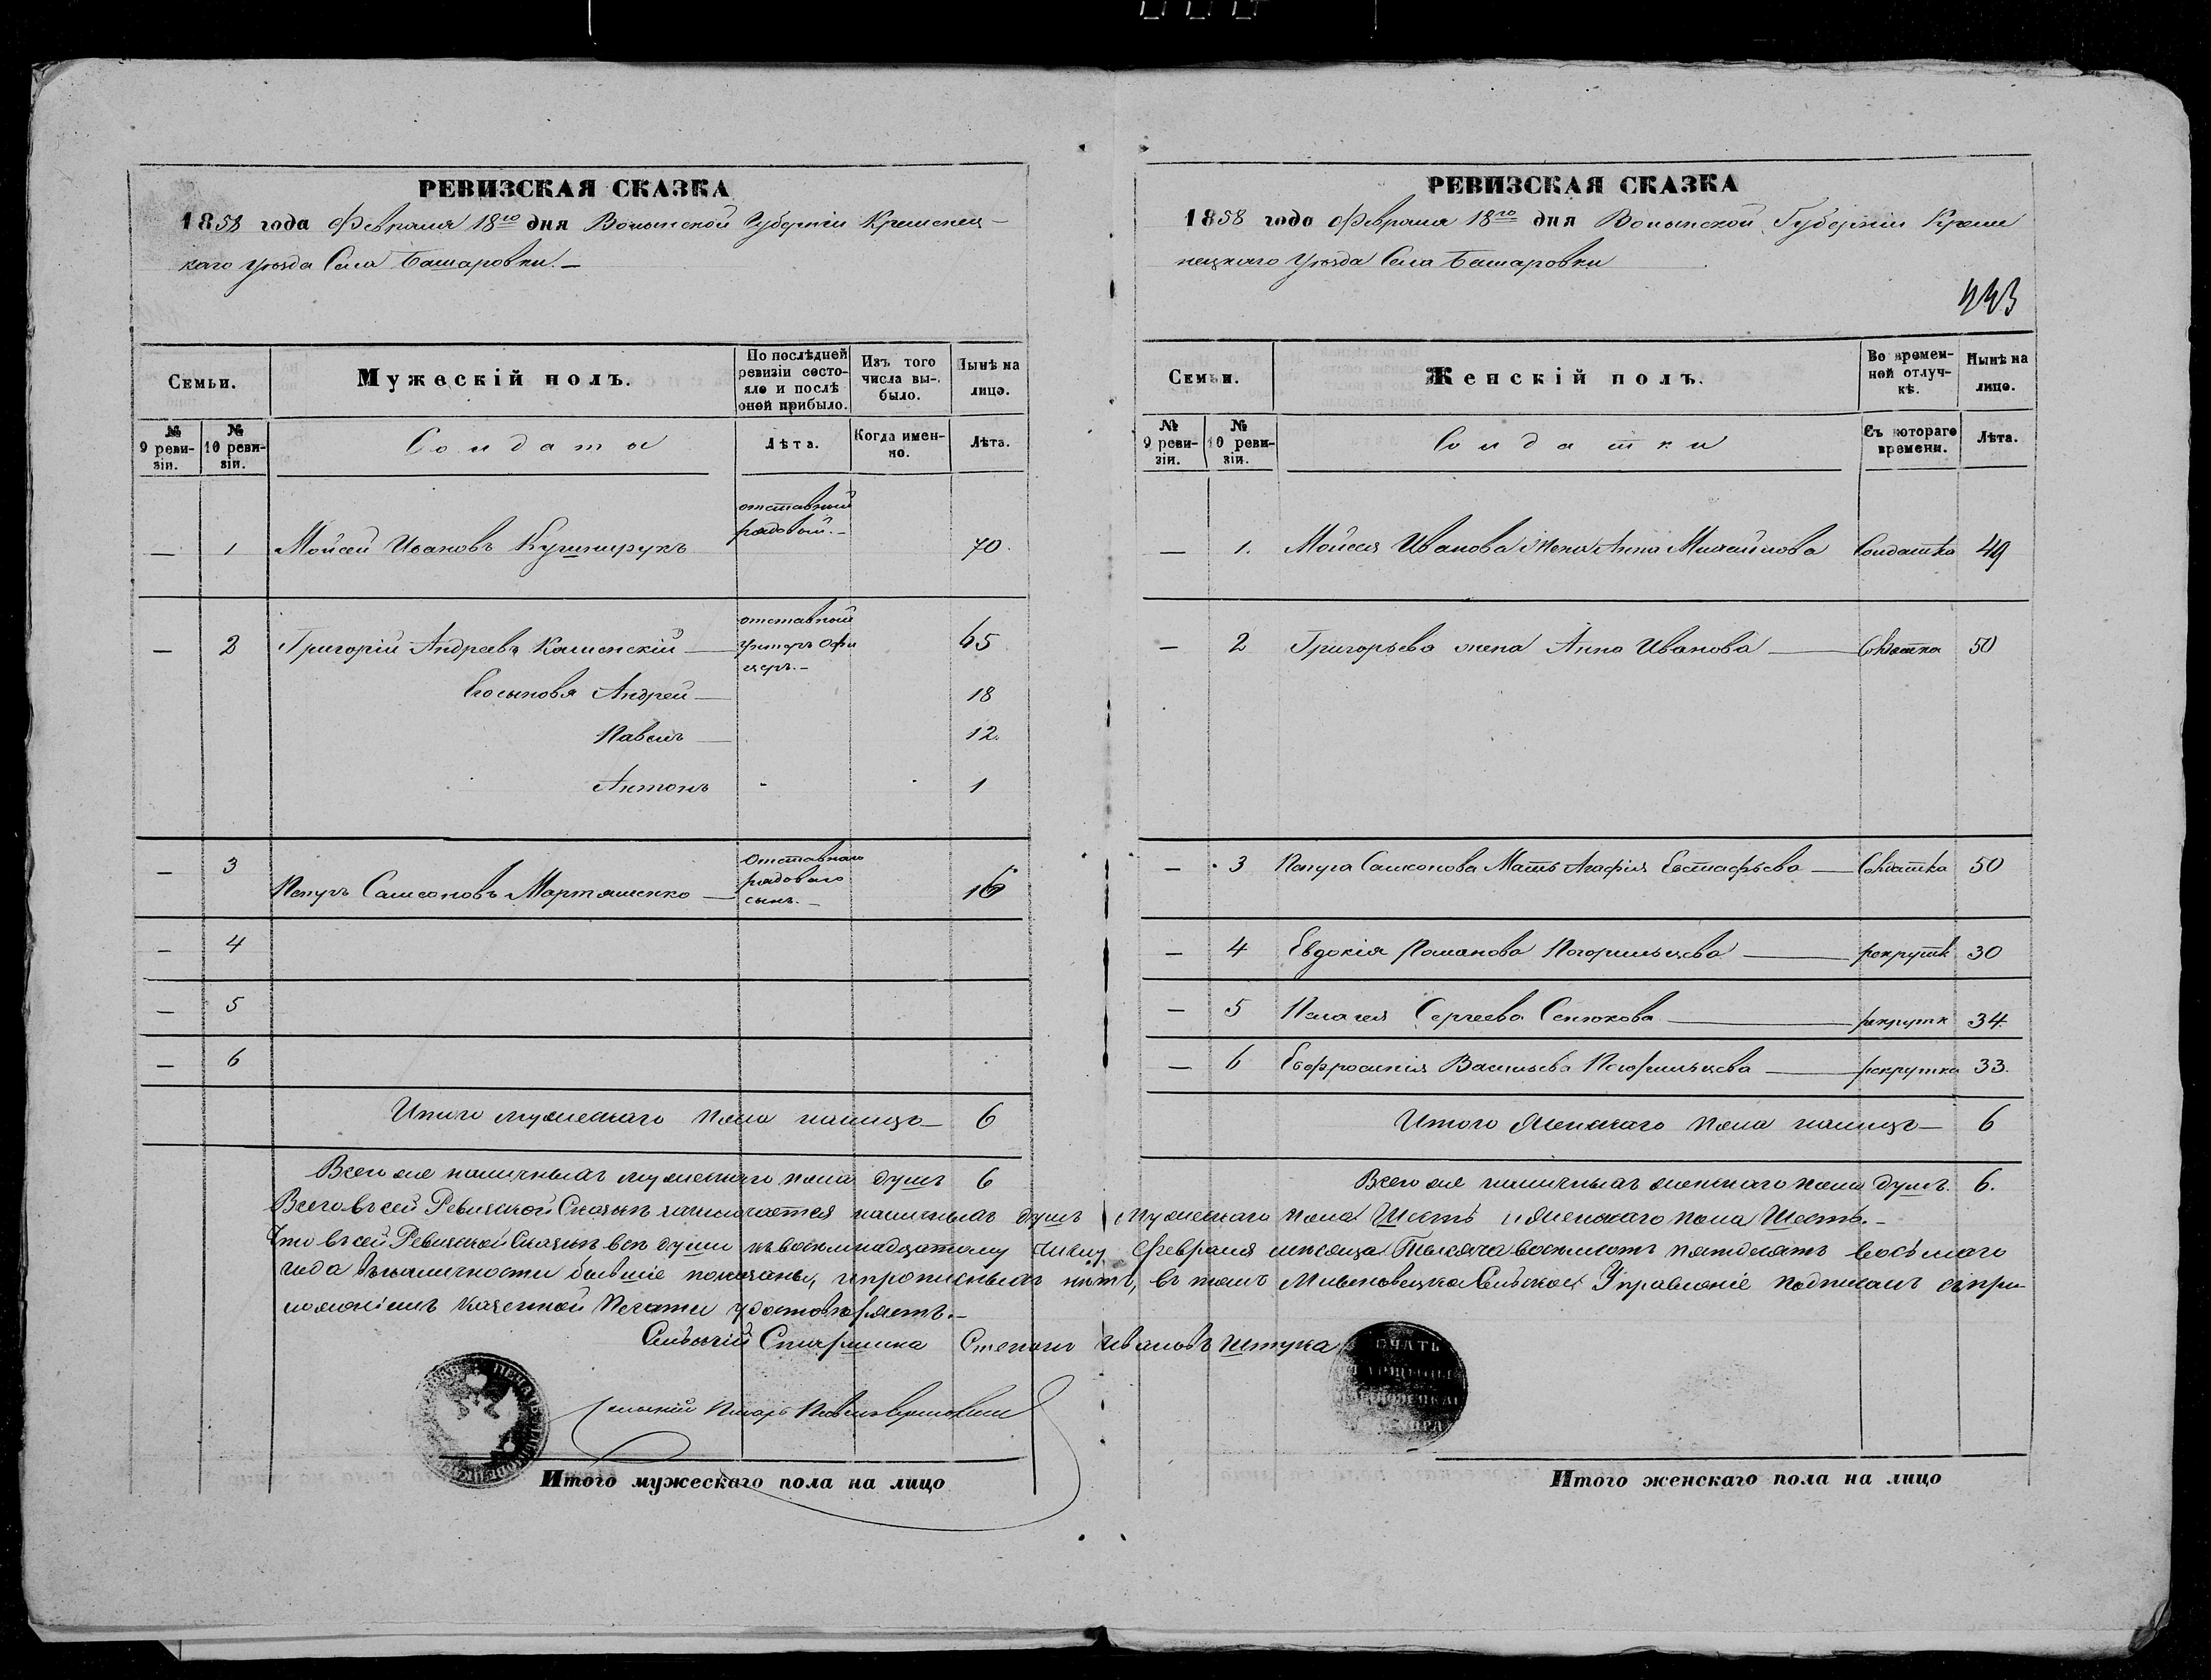 РЕВИЗСКАЯ СКАЗКА
1858 года Февраля 18го дня Волынской Губерніи Кременец-
каго Уѣзда Села Башаровки.
Семьи.
Мужескій полъ.
По послѣдней ревизіи состо-яло и послѣ оной прибыло.
Изъ того числа вы-было.
Нынѣ на лицо.
№ 9 реви-зіи.
№ 10 реви-зіи.
Солдаты
Лѣта.
Когда имен-но.
Лѣта.
— 1 Мойсей Ивановъ Кушнирукъ отставный рядовый. 70.
— 2 Григорій Андреевъ Каменскій отставной унтеръ офицеръ. 65
Его сыновя Андрей 18
Павелъ 12.
Антонъ 1
— 3 Петръ Самсоновъ Мартышенко отставнаго рядоваго сынъ. 16
— 4
— 5
— 6
Итого мужескаго пола налицо 6
Всего же наличныхъ мужескаго пола душъ 6
РЕВИЗСКАЯ СКАЗКА
1858 года Февраля 18го дня Волынской Губерніи Креме
нецкаго Уѣзда Села Башаровки
443
Семьи.
Женскій полъ.
Во времен-ной отлуч-кѣ.
Нынѣ на лицо.
№ 9 реви-зіи.
№ 10 реви-зіи.
Солдатки
Съ котораго времени.
Лѣта.
— 1. Мойсея Иванова жена Анна Михайлова Солдатка 49
— 2 Григорьева жена Анна Иванова Солдатка 50
— 3 Петра Самсонова Мать Агафія Евстафьева Солдатка 50
— 4 Евдокія Романова Погорильцева рекрутк 30
— 5 Пелагея Сергеева Сенюкова рекрутк 34.
— 6 Евфросинія Васильева Погорильцева рекрутка 33.
Итого Женскаго пола налицо 6
Всего же наличныхъ женскаго пола душъ. 6.
Всего въ сей Ревизской Сказкѣ заключается наличныхъ душъ мужескаго пола Шесть и Женскаго пола Шесть.
Что въ сей Ревизской Сказкѣ всѣ души къ восемнадцатому числу Февраля мѣсяца Тысяча восемсотъ пятдесятъ восьмаго
года въ наличности бывшіе показаны, и прописныхъ нѣтъ, въ томъ Сельское Управленіе подписомъ съ при
ложеніемъ казенной Печати удостовѣряетъ.
Сельскій Старшина Степанъ Ивановъ Штука
Сельскій Писарь
ПЕЧАТЬ
Итого мужескаго пола на лицо
Итого женскаго пола на лицо